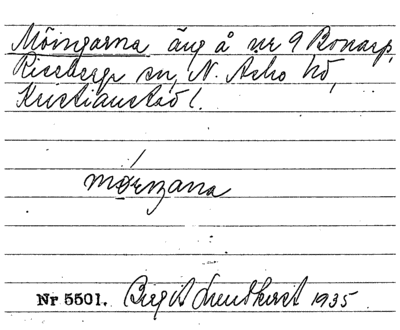 Möingarna äng å nr 9 Bonarp,
Riseberga sn, N. Åsbo hd,
Kristianstad l.
Nr 5501. Birgit Lundkvist 1935